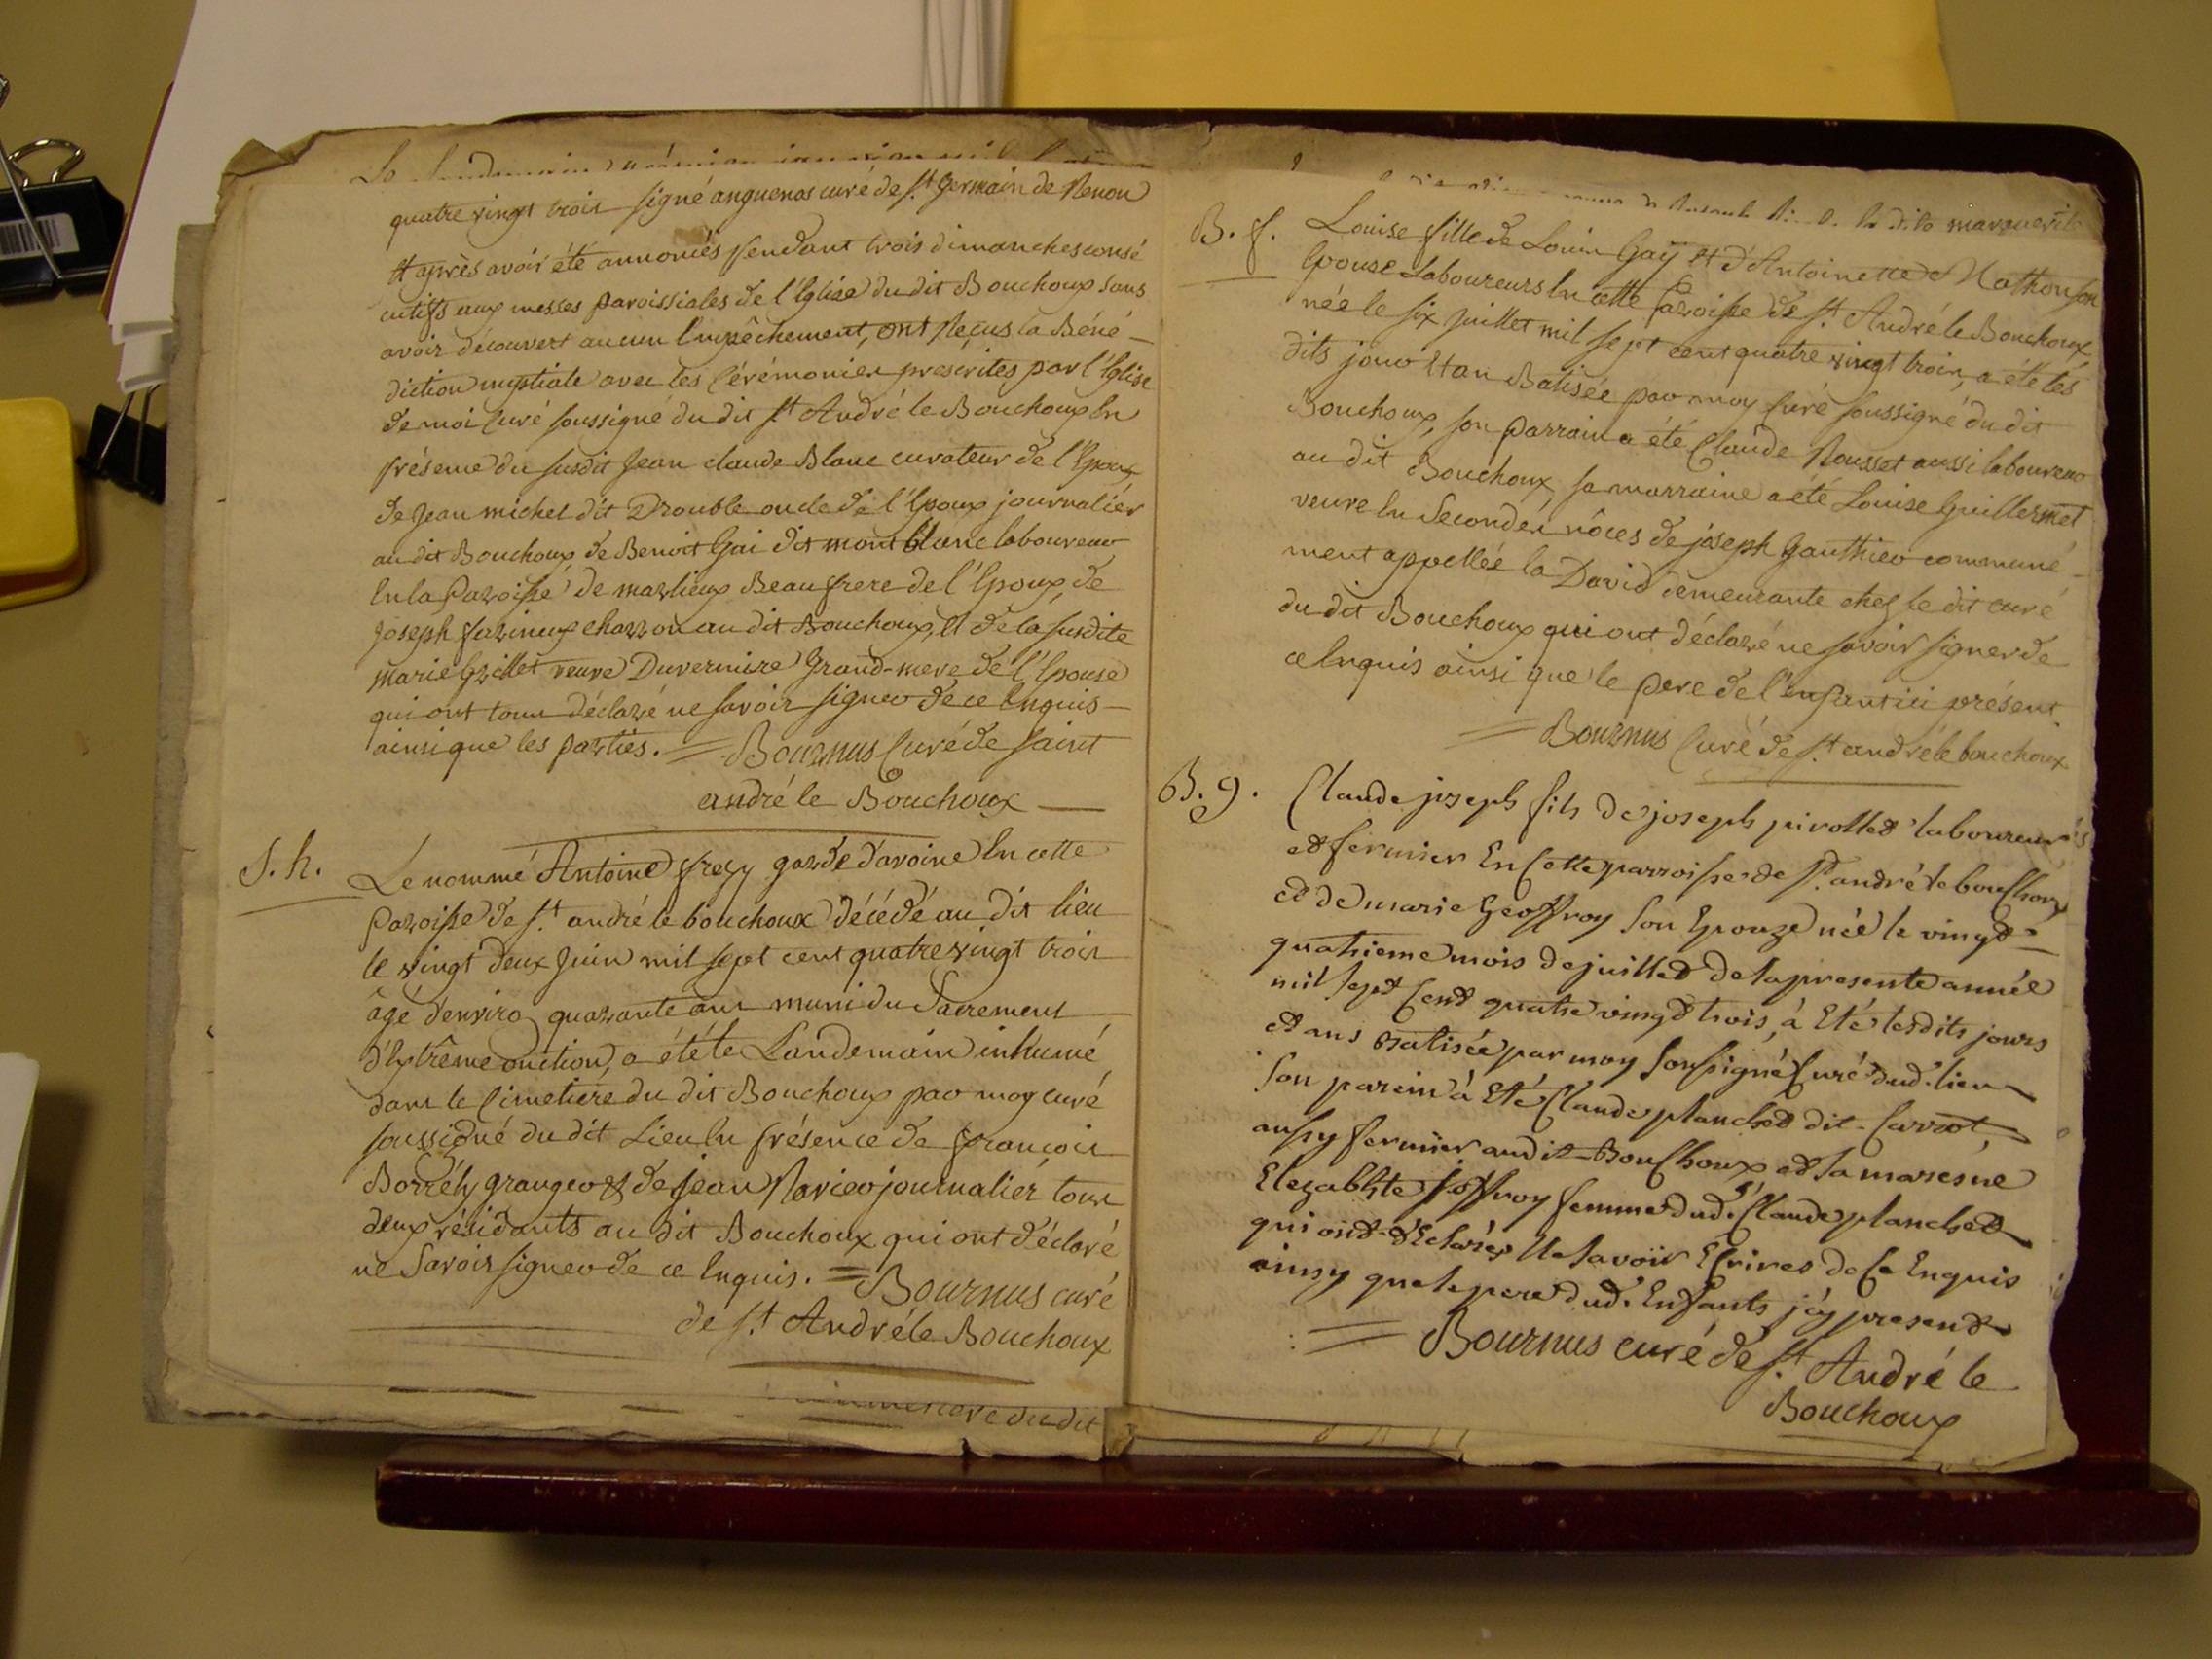 quatre vingt trois signé anguenas curé de St. Germain de Renon
Et après avoir été annoncés pendant trois dimanches consé
cutifs aux messes paroissiales de l'Eglise du dit Bouchoux sans
avoir découvert aucun Empêchement, ont Reçus la Béné-
diction nuptiale avec les Cérémonies prescrites par l'Eglise
de moi Curé soussigné du dit St. André le Bouchoux En
présence du susdit Jean claude Blanc curateur de l'Epoux,
de Jean michel dit Drouble oncle de l'Epoux journalier
au dit Bouchoux de Benoit Gai dit mont blanc laboureur
En la Paroisse de marlieux Beaufrere de l'Epoux, de
Joseph farineux charron au dit Bouchoux, Et de la susdite
marie Grillet veuve Duverniere Grand-mere de l'Epouse
qui ont tous déclaré ne savoir signer de ce Enquis-
ainsi que les parties. = Bournus Curé de saint
andré le Bouchoux
S. h. Le nommé Antoine frezy garde d'avoine En cette
Paroisse de St. andré le bouchoux décédé au dit lieu
le vingt deux Juin mil sept cent quatre vingt trois
âgé d'enviro quarante ans muni du Sacrement
d'Extrême onction, a été le Landemain inhumé
dans le Cimetiere du dit Bouchoux par moy curé
soussigné du dit Lieu En présence de françois
Borrély granger & de jean Navier journalier tous
deux résidants au dit Bouchoux qui ont déclaré
ne Savoir signer de ce Enquis. = Bournus curé
de St. André le Bouchoux
du dit
la dite marguerite
B. f. Louise fille de Louis Gaÿ Et d'Antoinette Mathon son
Epouse Laboureurs En cette Paroisse de St. André le Bouchoux,
née le six juillet mil sept cent quatre vingt trois, a été les
dits jour Et an Batisée par moy Curé soussigné du dit
Bouchoux, son parrain a été Claude Rousset aussi laboureur
au dit Bouchoux, sa marraine a été Louise Guillermet
veuve En Secondes nôces de joseph Gauthier communé-
ment appellée la David demeurante chez le dit curé
du dit Bouchoux qui ont déclaré ne savoir signer de
ce Enquis ainsi que le pere de l'enfant ici présent
= Bournus Curé de St. andré le bouchoux
B. g. Claude joseph fils de joseph pirollet laboureur
et fermier En Cette parroisse de St. andré le bouChoux
et de marie Geoffroy Son Epouze néé le vingt
quatrieme mois de juillet de la presente année
mil Sept Cent quatre vingt trois, à Eté lesdits jours
et ans Batisée par moy Sousigné Curé dud. lieu
Son parein à Eté Claude planchet dit- Carrot,
ausy fermier audit-BouChoux, et sa maresne
Elezabhte joffroy femme dud. Claude planchet
qui ont-dEclarés Ne Savoir ECrires de Ce Enquis
ainsy que le pere dud. Enfants jcy present
= Bournus curé de St. André le
Bouchoux